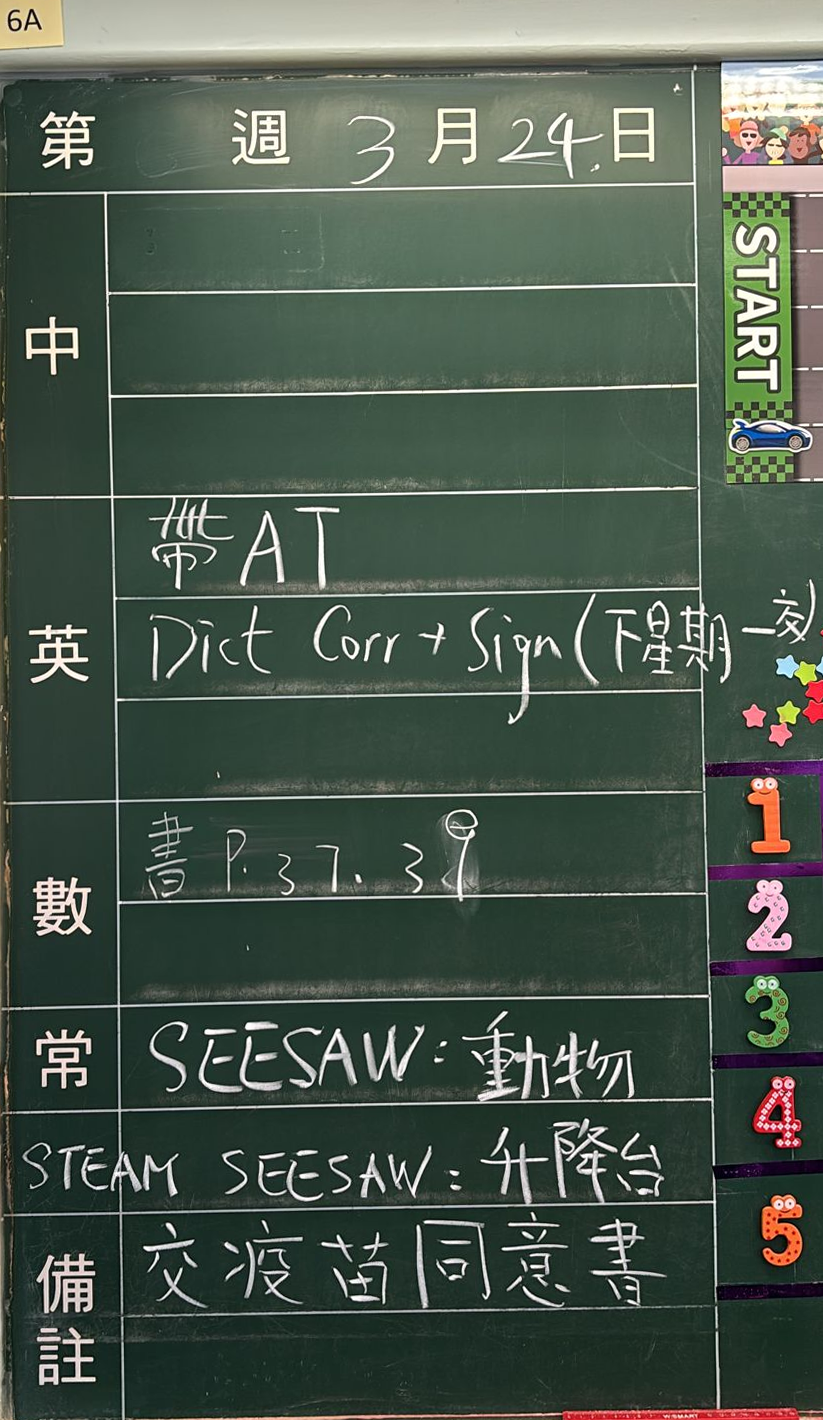 6A
第 週 3 月 24 日
START
中
英
帶 AT
Dict Corr + Sign (下星期一交)
數
書 P. 37. 39
常
SEESAW: 動物
STEAM SEESAW: 升降台
備註
交疫苗同意書
1
2
3
4
5